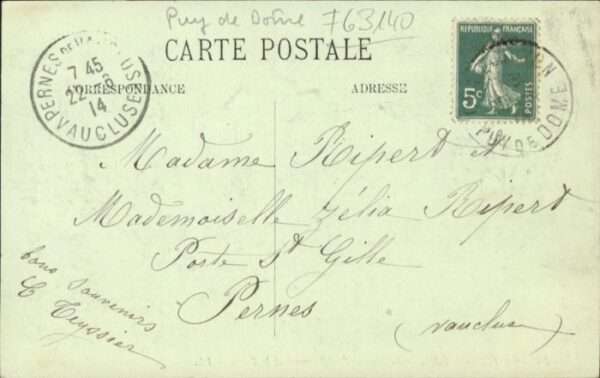 Puy de Dôme 763140
CARTE POSTALE
CORRESPONDANCE
ADRESSE
PERNES
7 45
22
14
VAUCLUSE
RÉPUBLIQUE FRANÇAISE
5c
POSTES
PUY DE DOME
Madame Ripert et
Mademoiselle Zélia Ripert
Porte St Gille
Pernes
(Vaucluse)
bons souvenirs
C Teyssier